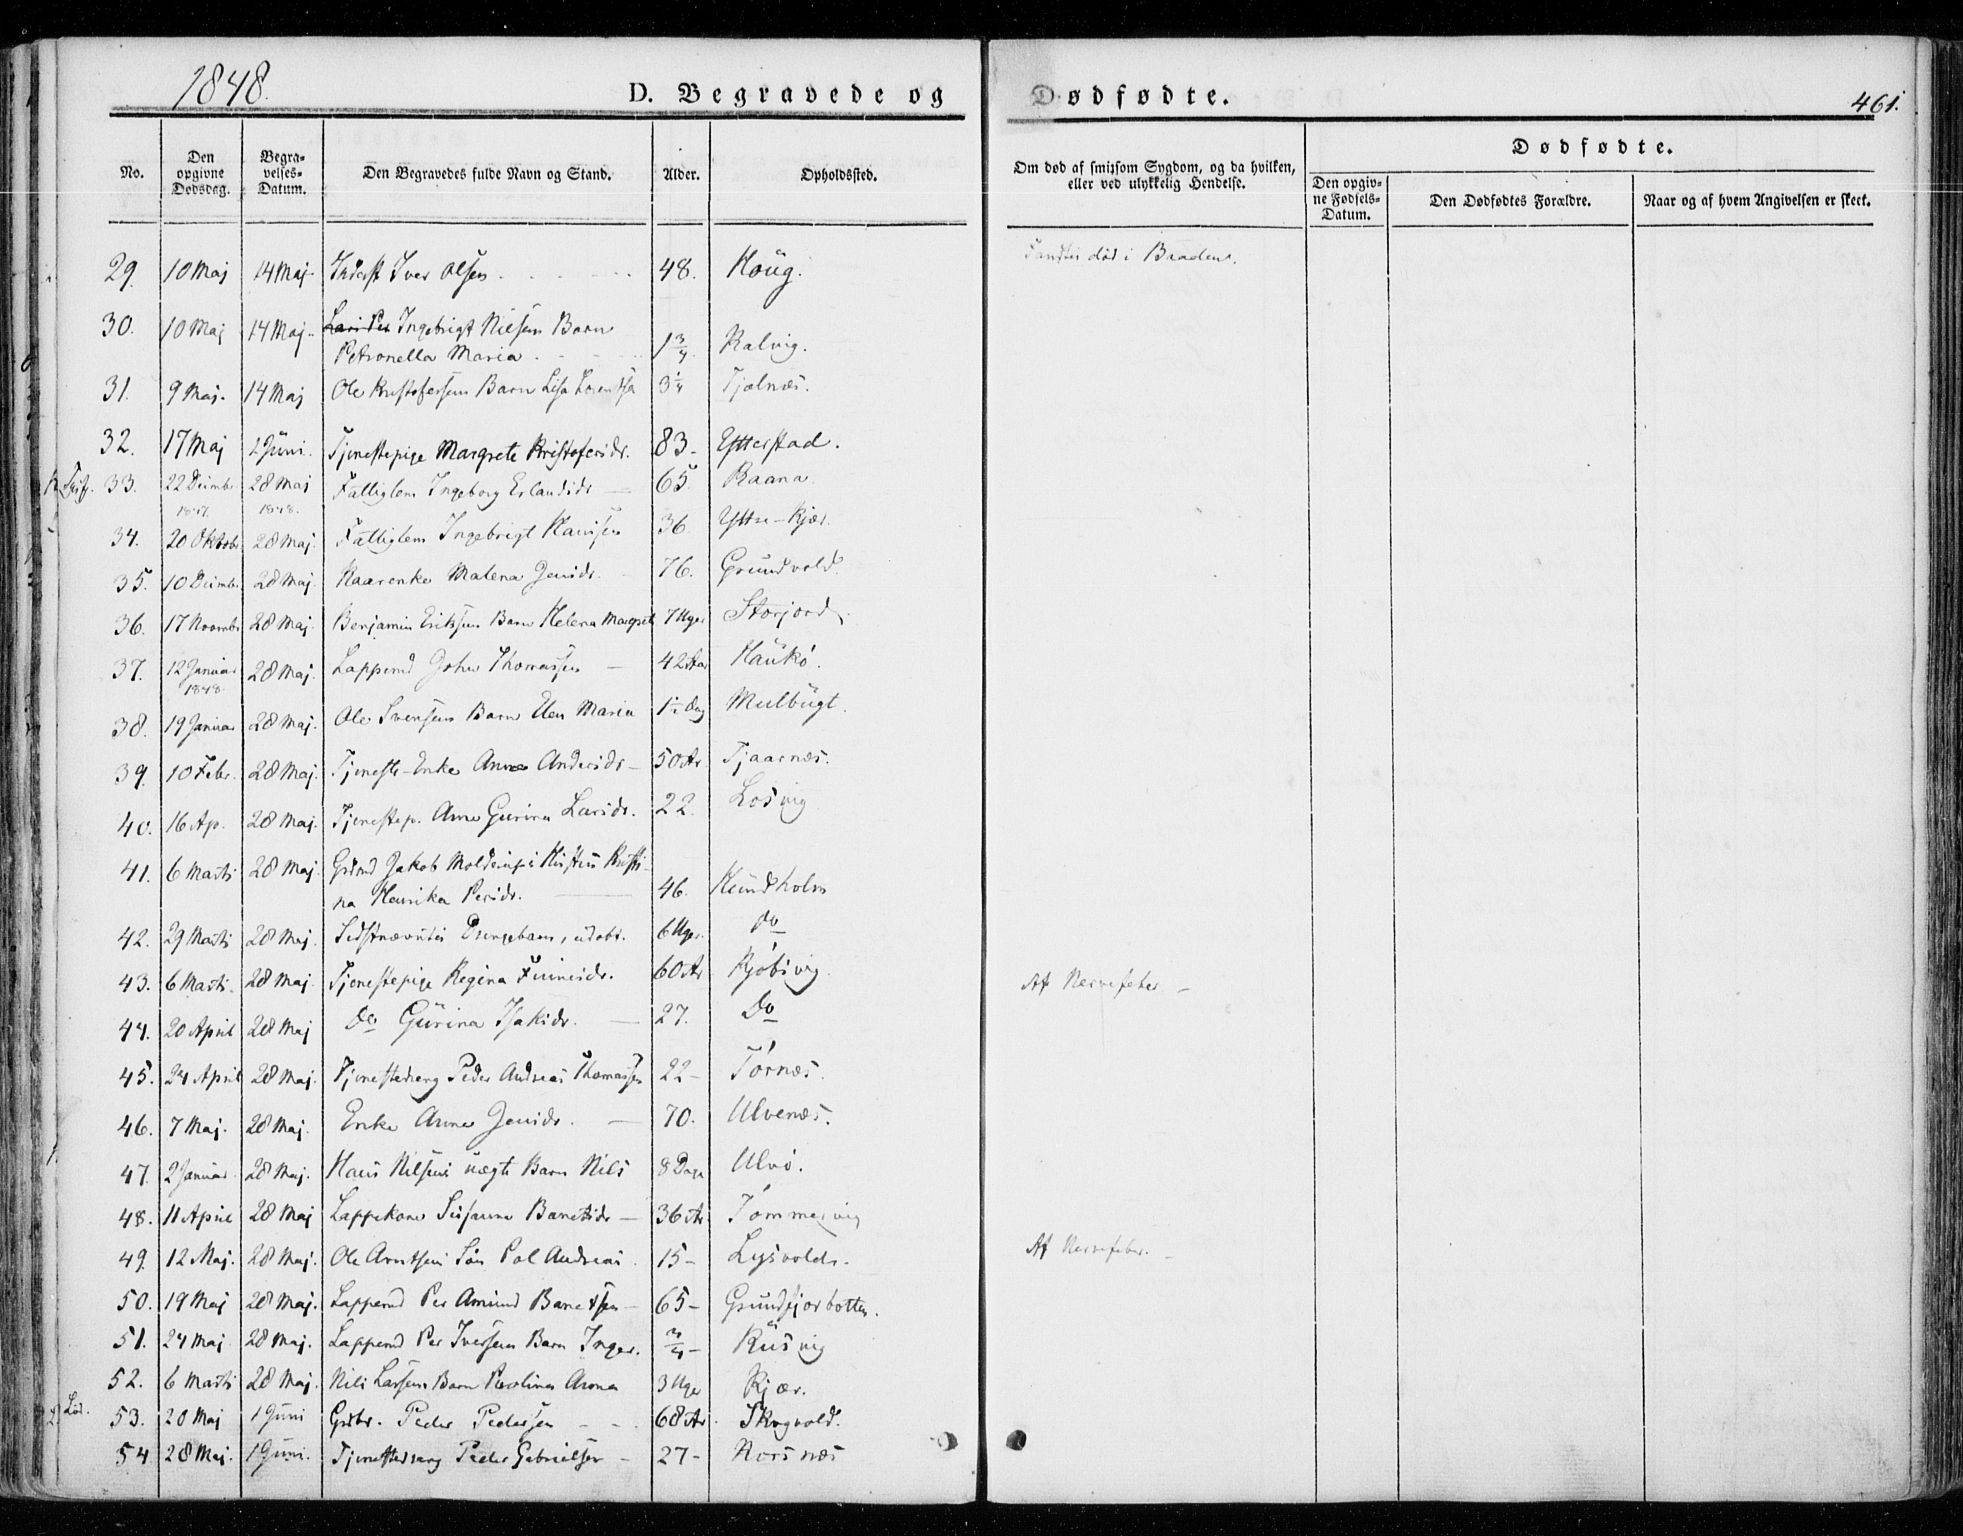 1848.
D. Begravede og Dødfødte.
461.
No.
Den opgivne Dødsdag.
Begravelses-Datum.
Den Begravedes fulde Navn og Stand.
Alder.
Opholdssted.
Om død af smitsom Sygdom, og da hvilken, eller ved ulykkelig Hendelse.
Dødfødte.
Den opgivne Fødsels-Datum.
Den Dødfødtes Forældre.
Naar og af hvem Angivelsen er skeet.
29. 10 Maj 14 Maj Inderst Iver Olsen 48. Houg. Fandtes død i Baaden.
30. 10 Maj 14 Maj Ingebrigt Nilsens Barn
Petronella Maria 1 3/4 Kalvig.
31. 9 Maj. 14 Maj Ole Kristofersens Barn Lisa 3 1/4 Tjelnæs.
32. 17 Maj 1 Juni. Tjenestepige Margrete Kristofersdr. 83 Ytterstad.
33. 22 Decembr 28 Maj Fattiglem Ingeborg Erlandsdr 65. Raana.
1847. 1848.
34. 20 Oktobr 28 Maj. Fattiglem Ingebrigt Hansen 36. Yttre-Kjær.
35. 10 Decembr 28 Maj. Kaarenke Malena Jensdr. 76. Grundvold.
36. 17 Novembr 28 Maj. Benjamin Eriksens Barn Helena Margret 7 Uger Storjord.
37. 12 Januar 28 Maj. Lappemd John Thomassen 42 Aar Haukø.
1848.
38. 19 Januar 28 Maj. Ole Svensens Barn Elen Maria 1 1/2 Dag Mulbugt.
39. 10 Febr. 28 Maj. Tjeneste-Enke Anne Andersdr 50 Ar Tjaarnæs.
40. 16 Ap. 28 Maj. Tjenestep. Anne Gurina Larsdr. 22. Losvig
41. 6 Marts 28 Maj. Grdmd Jakob Hustru Kristi-
na Henrika Persdr. 46. Hundholm
42. 29 Marts 28 Maj. Sidstnævntes Drengebarn, udøbt. 6 Uger. Do
43. 6 Marts. 28 Maj. Tjenestepige Regina 60 Ar Kjøbsvig. Af Nervefeber.
44. 20 April 28 Maj Do Gurina Isaksdr. 27. Do
45. 24 April 28 Maj. Tjenestedreng Peder Andreas Thomassen 22 Tørnæs.
46. 7 Maj. 28 Maj. Enke Anne Jensdr. 70. Ulvenæs.
47. 2 Januar 28 Maj. Hans Nilsens uægte Barn Nils 8 Dage Ulvø.
48. 11 April 28 Maj Lappekone Susanne Barnetsdr 36 Ar Tømmervig
49. 12 Maj. 28 Maj. Ole Arntsens Søn Pol Andreas 15 Lysvold. Af Nervefeber.
50. 19 Maj 28 Maj. Lappemd Per Amund Barnetsen 65 Grundfjorbotten.
51. 24 Maj 28 Maj. Lappemd Per Iversens Barn Inger. 3/4 Husvig
52. 6 Marts 28 Maj. Nils Larsens Barn Pevlina Anna 3 Uger Kjær.
53. 20 Maj 1 Juni Grdbr. Peder Pedersen 68 Ar. Skogvold.
54. 28 Maj. 1 Juni. Tjenestedreng Peder Gabrielsen 27 Korsnæs